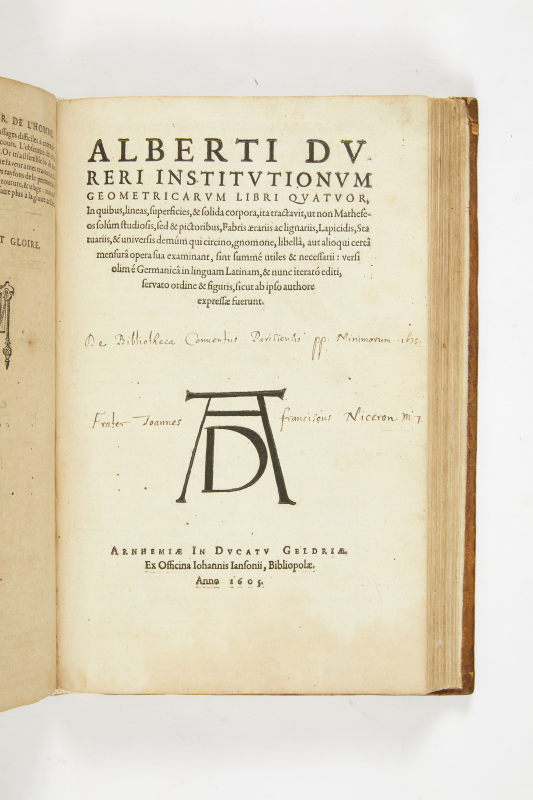 R. DE L'HOMME
T GLOIRE.
ALBERTI DV-
RERI INSTITVTIONVM
GEOMETRICARVM LIBRI QVATVOR,
In quibus, lineas, superficies, & solida corpora, ita tractavit, ut non Mathese-
os solúm studiosis, sed & pictoribus, Fabris ærariis ac lignariis, Lapicidis, Sta
tuariis, & universis demúm qui circino, gnomone, libellâ, aut alioqui certâ
mensurâ opera sua examinant, sint summé utiles & necessarii: versi
olim é Germanicâ in linguam Latinam, & nunc iteratό editi,
servato ordine & figuris, sicut ab ipso authore
expressæ fuerunt.
De Bibliotheca Conventus Parisiensis pp. Minimorum
AD
Frater Joannes franciscus Niceron
ARNHEMIÆ IN DVCATV GELDRIÆ.
Ex Officina Iohannis Iansonii, Bibliopolæ.
Anno 1605.